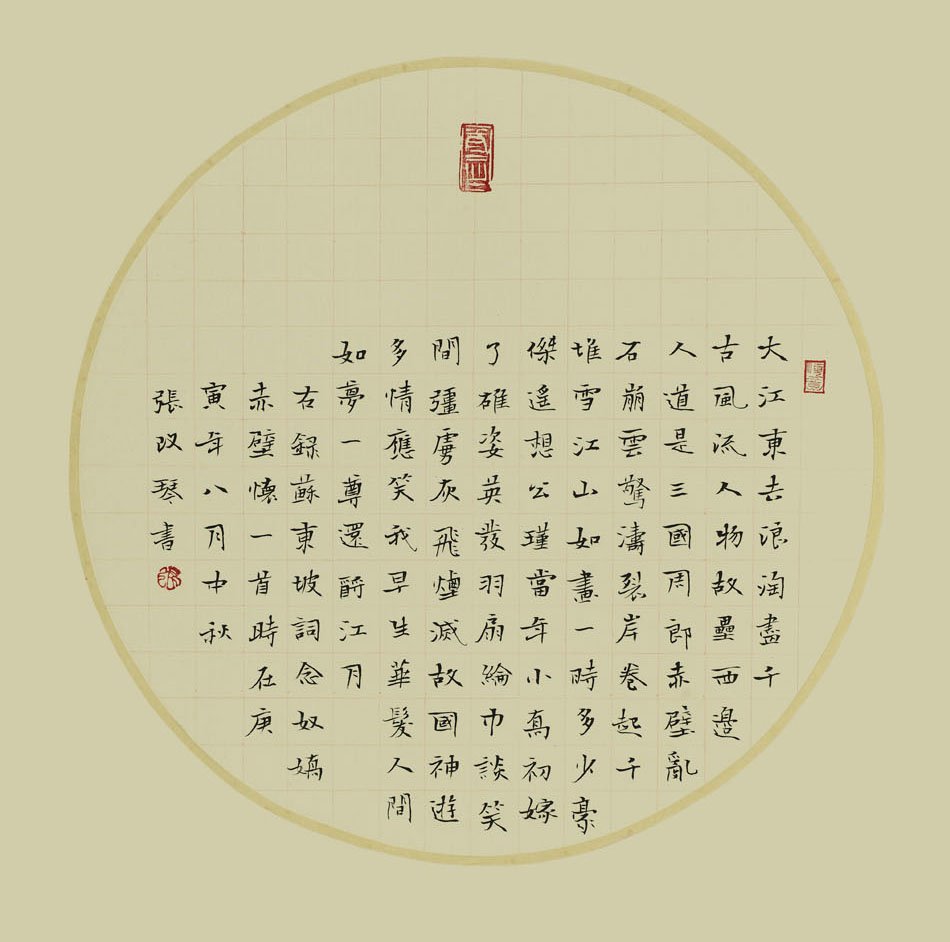 大江東去浪淘盡千
古風流人物故壘西邊
人道是三國周郎赤壁亂
石崩雲驚濤裂岸卷起千
堆雪江山如畫一時多少豪
傑遙想公瑾當年小喬初嫁
了雄姿英發羽扇綸巾談笑
間彊虜灰飛煙滅故國神遊
多情應笑我早生華髮人間
如夢一尊還酹江月
右錄蘇東坡詞念奴嬌
赤壁懷一首時在庚
寅年八月中秋
張改琴書